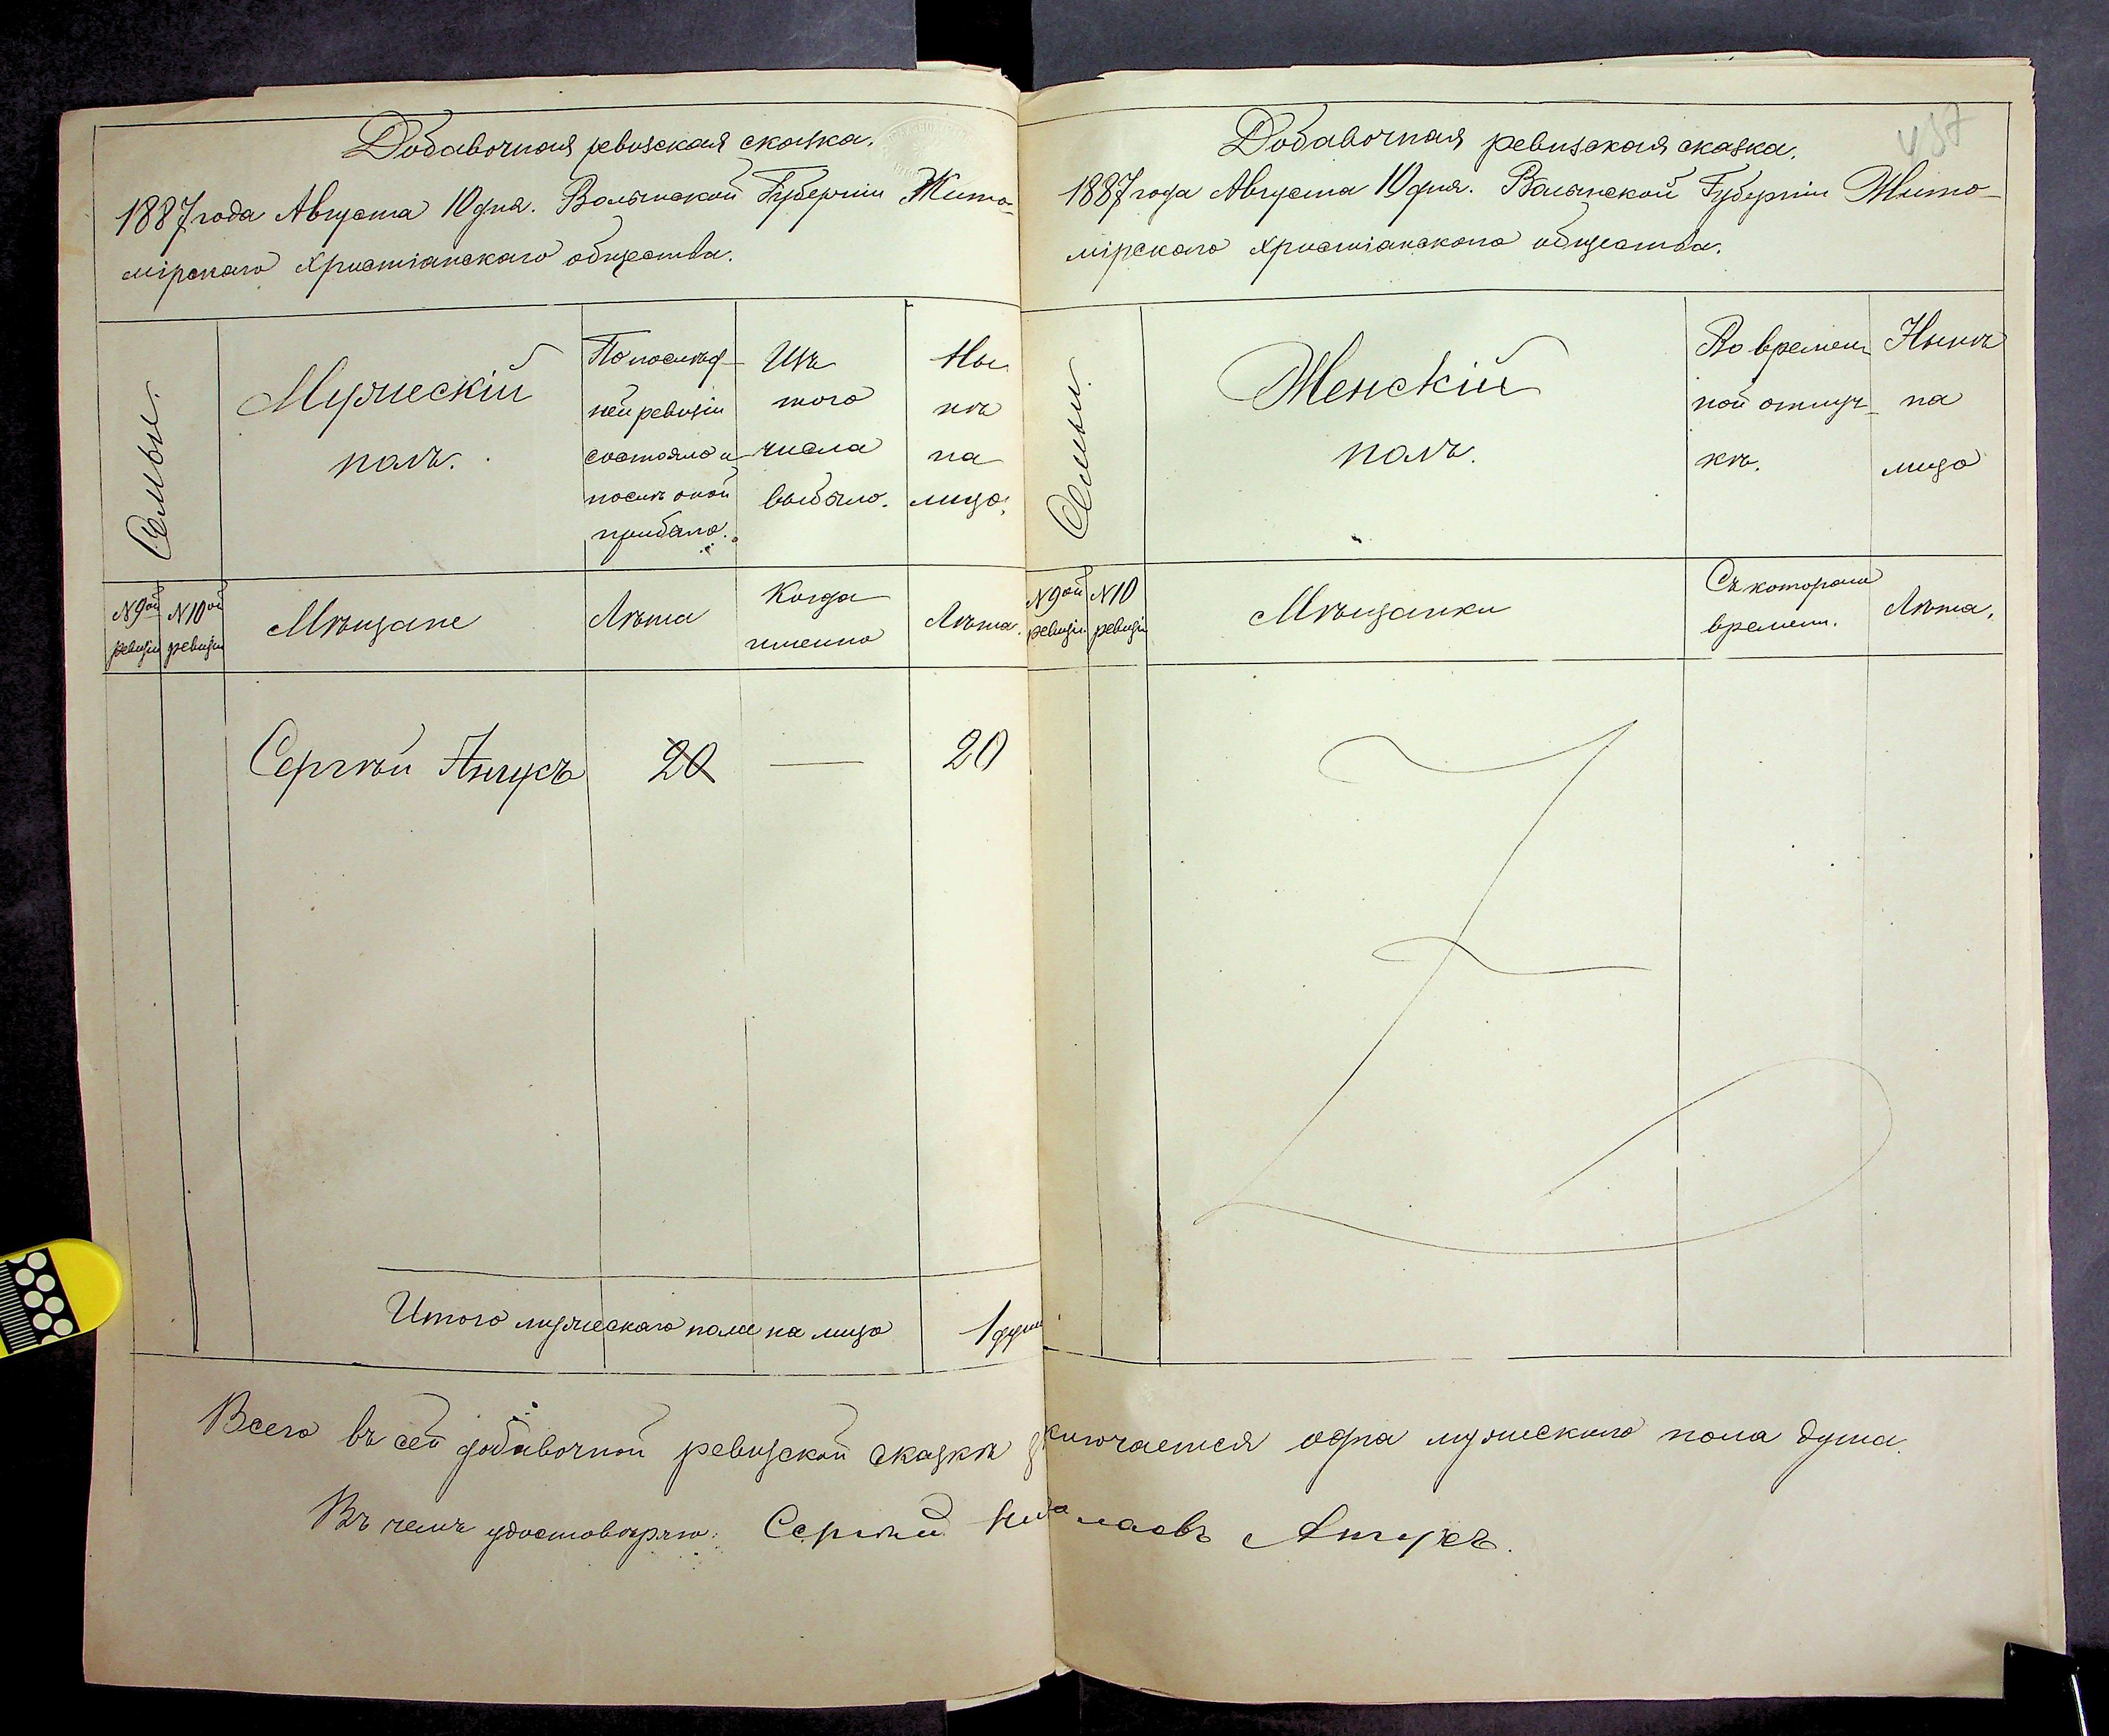 Добавочная ревизская сказка.
1887 года Августа 10 дня. Волынской Губерніи Жито-
мірскаго христіанскаго общества.
Семьи.
Мужескій
полъ.
По послѣд-
ней ревизіи
состояло и
послѣ оной
прибыло.
Изъ
того
числа
выбыло.
Ны
нѣ
на
лицо.
№ 9ой
ревизіи
№ 10ой
ревизіи
Мѣщане
Лѣта
Когда
именно
Лѣта.
Сергѣй
20
20
Итого мужескаго пола на лицо
1 душа
Добавочная ревизская сказка.
1887 года Августа 10 дня. Волынской Губерніи Жито-
мірскаго христіанскаго общества.
Семьи.
Женскій
полъ.
Во времен
ной отлуч-
кѣ.
Нынѣ
на
лицо
№ 9ой
ревизіи
№ 10
ревизіи
Мѣщанки
Съ котораго
времени.
Лѣта.
Всего въ сей добавочной ревизской сказкѣ заключается одна мужескаго пола душа.
Въ чемъ удостовѣряю: Сергѣй